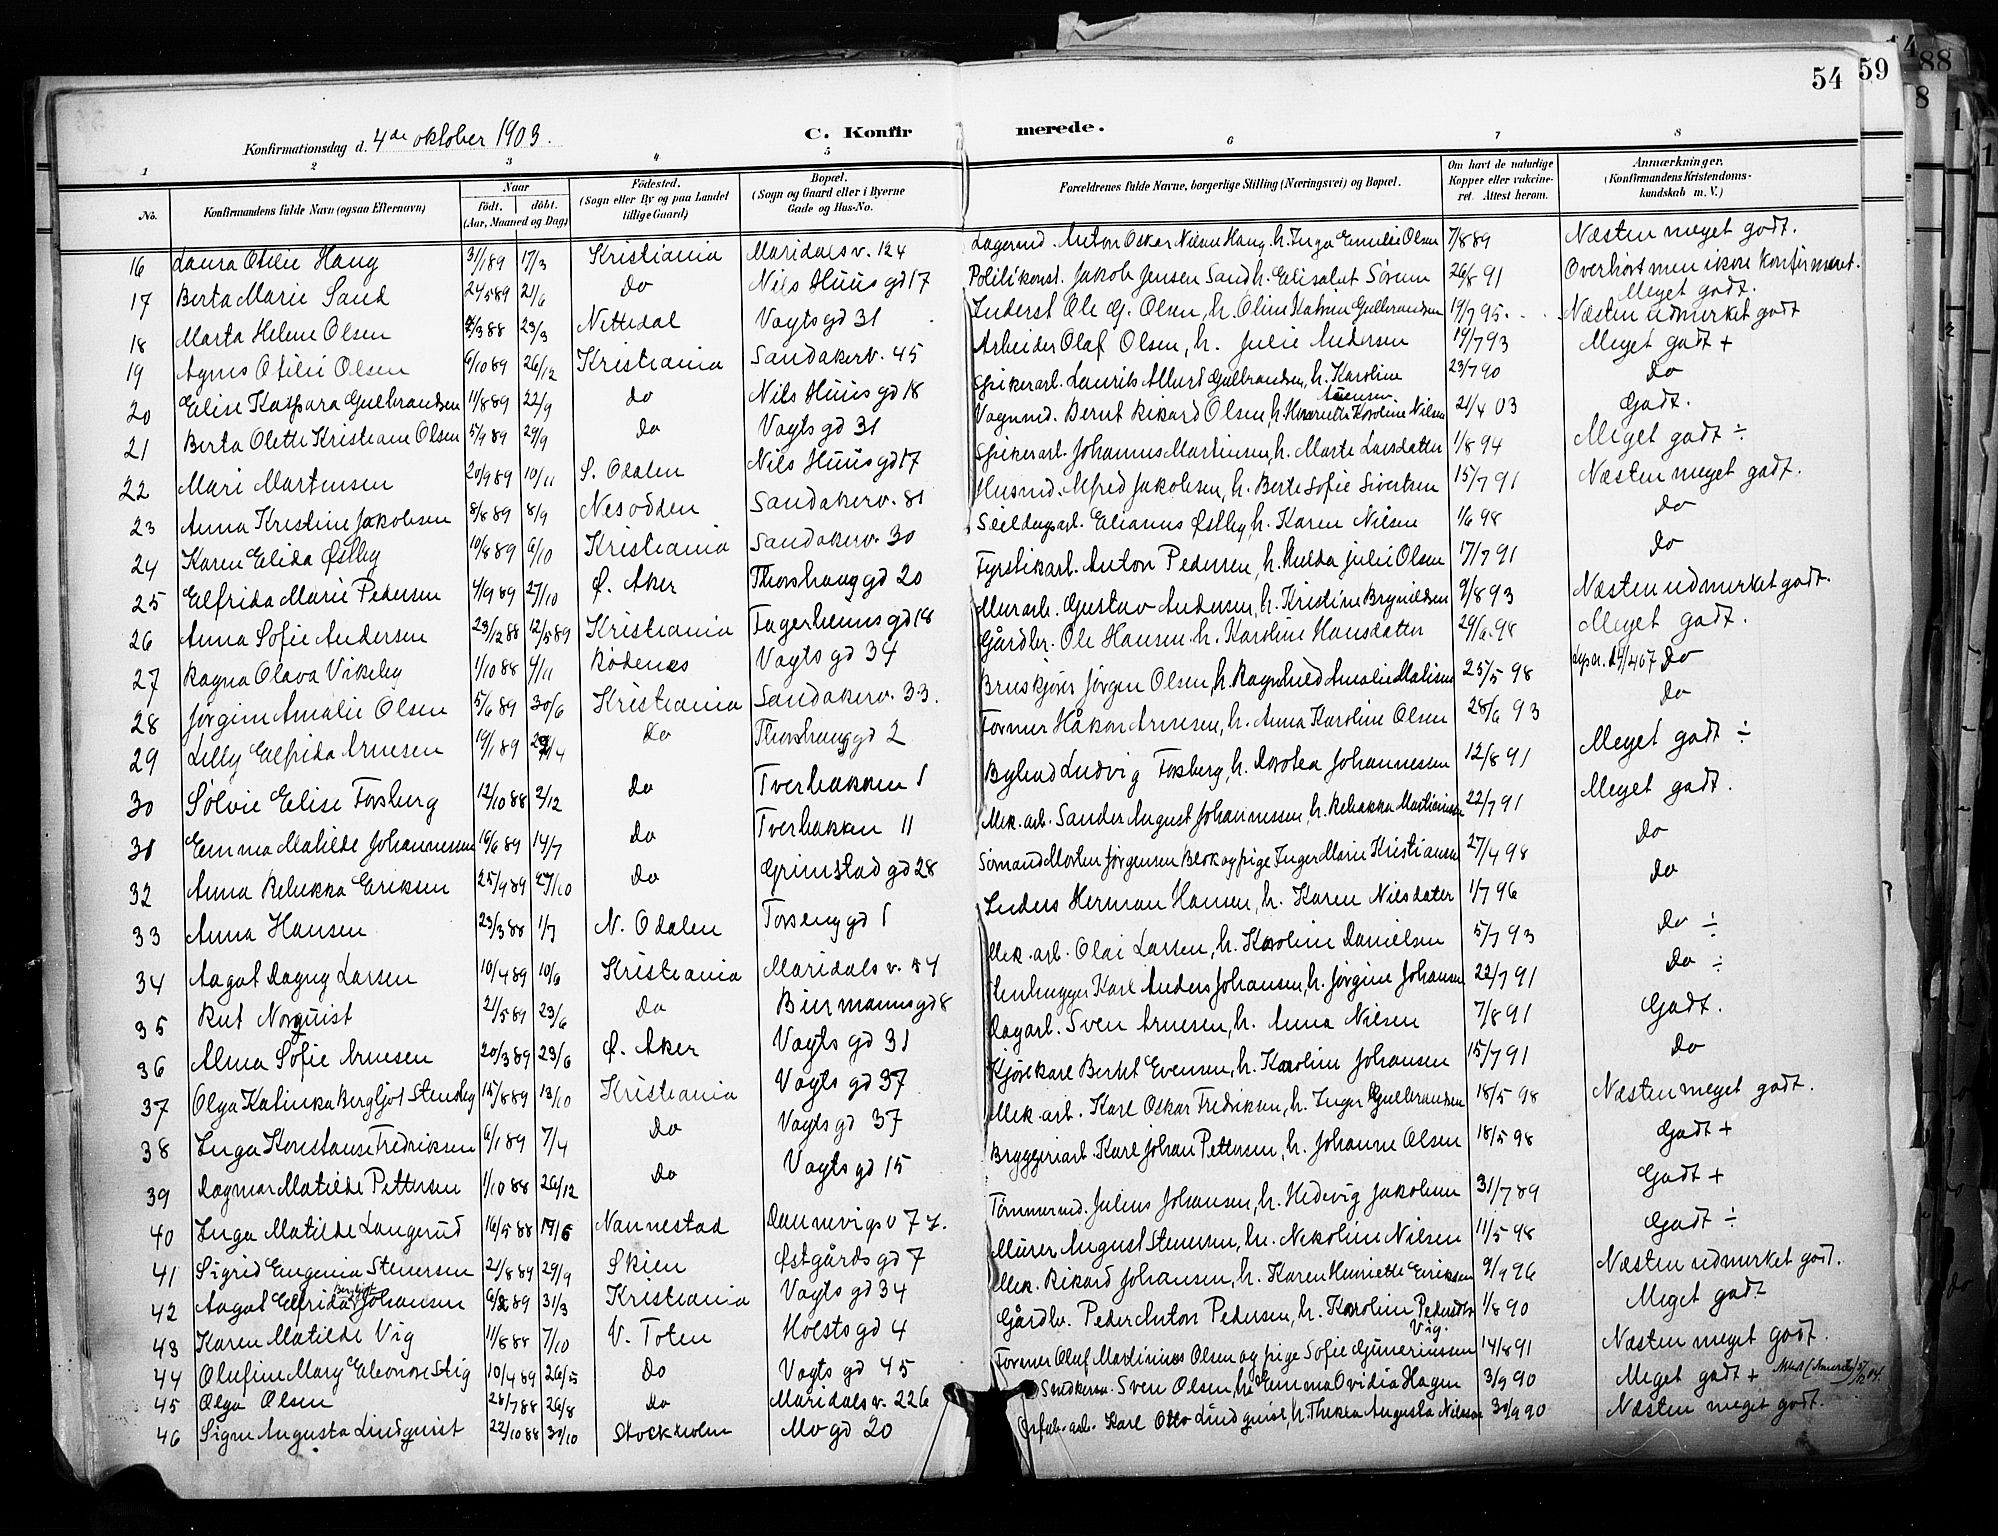 54 59 88
8
Konfirmationsdag d. 4de oktober 1903.
C. Konfirmerede.
1 2 3 4 5 6 7 8
No. Konfirmandens fulde Navn (ogsaa Efternavn) Naar født. døbt. (Aar, Maaned og Dag) Fødested. (Sogn eller By og paa Landet tillige Gaard) Bopæl. (Sogn og Gaard eller i Byerne Gade og Hus-No. Forældrenes fulde Navne, borgerlige Stilling (Næringsvei) og Bopæl. Om havt de naturlige Kopper eller vaccineret. Attest herom. Anmærkninger. (Konfirmandens Kristendomskundskab m. V.)
16 Laura Otilie Haug 31/1 89 17/3 Kristiania Maridalsv. 124 Lagermd. Anton Oskar Nilsen Haug, h. Inga Emilie Olsen 7/8 89 Næsten meget godt.
17 Berta Marie Sand 24/5 89 21/6 Do Nils Huus gd 17 Politikonst. Jakob Jensen Sand h. Elisabet Sørum 26/8 91 Overhørt men ikke konfirmeret. Meget godt.
18 Marta Helene Olsen 4/3 88 23/3 Nittedal Vogts gd 31 Inderst Ole G. Olsen, h. Oline Katrine Gulbrandsen 19/7 95. Næsten udmerket godt
19 Agnes Otilie Olsen 6/10 89 26/12 Kristiania Sandakerv. 45 Arbeider Olaf Olsen, h. Julie Andersen 19/7 93 Meget godt +
20 Elise Kaspara Gulbrandsen 11/8 89 22/9 do Nils Huus gd 18 Spikerarb. Laurits Albert Gulbrandsen, h. Karoline Arnesen 23/7 90 Do
21 Berta Olette Kristiane Olsen 5/9 89 29/9 do Vogts gd 31 Vognmd. Bernt Rikard Olsen, h. Henriette Karoline Nilsen 21/4 03 Godt.
22 Mari Martinsen 20/9 89 10/11 S. Odalen Nils Huus gd 17 Spikerarb. Johannes Martinsen, h. Marte Larsdatter 1/8 94 Meget godt ÷
23 Anna Kristine Jakobsen 8/8 89 8/9 Nesodden Sandakerv. 81 Husmd. Alfred Jakobsen, h. Berte Sofie Sivertsen 15/7 91 Næsten meget godt.
24 Karen Elida Østby 10/8 89 6/10 Kristiania Sandakerv. 30 Seildugsarb. Elianus Østby, h. Karen Nilsen 1/6 98 Do
25 Elfrida Marie Pedersen 4/9 89 27/10 Ø. Aker Thorshaug gd 20 Fyrstikarb. Anton Pedersen, h. Hulda Julie Olsen 17/7 91 Do
26 Anna Sofie Andersen 23/12 88 12/5 89 Kristiania Fagerheims gd 18 Murarb. Gustav Andersen, h. Kristine Brynildsen 9/8 93 Næsten udmerket godt.
27 Ragna Olava Vikeby 1/10 88 4/11 Rødenes Vogts gd 34 Gårdbr. Ole Hansen h. Karoline Hansdatter 29/6 98 Meget godt.
28 Jørgine Amalie Olsen 5/6 89 30/6 Kristiania Sandakerv. 33. Bruskjører Jørgen Olsen, h. Ragnhild Amalie 25/5 98 Do
29 Lilly Elfrida Arnesen 19/1 89 Do Thorshaug gd 2 Former Håkon Arnesen, h. Anna Karoline Olsen 28/6 93 Do
30 Sølvie Elise Forsberg 12/10 88 2/12 Do Tverbakken 1 Bybud Ludvig Forsberg, h. Dorotea Johannesen 12/8 91 Meget godt ÷
31 Emma Matilde Johannessen 16/6 89 14/7 Do Tverbakken 11 Mek. arb. Sander August Johannessen, h. Rebekka 22/7 91 Meget godt.
32 Anna Rebekka Eriksen 25/9 89 27/10 Do Grimstad gd 28 Sømand Morten Jørgensen og pige Inger Marie Kristiansen 27/4 98 Do
33 Anna Hansen 23/3 88 1/7 N. Odalen Torseng gd 1 Inders Herman Hansen, h. Karen Nilsdater 1/7 96 Do
34 Aagot Dagny Larsen 10/4 89 10/6 Kristiania Maridals v. 54 Mek. arb. Olai Larsen, h. Karoline Danielsen 5/7 93 Do ÷
35 Rut Norquist 21/5 89 23/6 Do Biermanns gd 8 Stenhugger Karl Anders Johansen, h. Jørgine Johansen 22/7 91 Do ÷
36 Alma Sofie Arnesen 20/3 89 23/6 Ø. Aker Vogts gd 31 Dagarb. Sven Arnesen, h. Anna Nilsen 7/8 91 Godt.
37 Olga Katinka Bergljot Stensby 15/8 89 13/10 Kristiania Vogts gd 37 Kjørekarl Berdt Evensen, h. Karoline Johansen 15/7 91 Do
38 Inga Konstanse Fredriksen 6/1 89 7/4 Do Vogts gd 37 Mek. arb. Karl Oskar Fredriksen, h. Inger Gulbrandsen 18/5 98 Næsten meget godt.
39 Dagmar Matilde Pettersen 1/10 88 26/12 Do Vogts gd 15 Bryggeriarb. Karl Johan Pettersen, h. Johanne Olsen 18/5 98 Godt +
40 Inga Matilde Langerud 16/5 88 Nannestad Dannevigsv 7 Tømmermd. Julius Johansen, h. Hedevig Jakobsen 31/7 89 Godt +
41 Sigrid Eugenia Stenersen 21/8 89 29/9 Skien Østgårds gd 7 Murer August Stenersen, h. Nekoline Nilsen 11/5 98 Godt ÷
42 Aagot Elfrida Bergljot Johansen 89 31/3 Kristiania Vogts gd 34 Mek. Rikard Johansen, h. Karen Henriette Eriksen 9/9 96 Næsten udmerket godt.
43 Karen Matilde Vig 11/8 88 7/10 V. Toten Holsts gd 4 Gårdbr. Peder Anton Pedersen, h. Karoline Pedersdtr Vig. 1/8 90 Meget godt
44 Olufine Mary Eleonore Stig 10/4 89 26/5 Do Vogts gd 45 Former Oluf Martinius Olsen og pige Sofie Gunerinssen 14/8 91 Næsten meget godt.
45 Olga Olsen 28/7 88 26/8 Do Maridalsv. 226 Sven Olsen, h. Emma Ovidia Hagen 3/9 90 Meget godt +
46 Signe Augusta Lindquist 22/10 88 30/10 Stockholm Mo gd 20 Karl Otto Lindquist, h. Thekla Augusta Nilsson 30/9 90 Næsten meget godt.